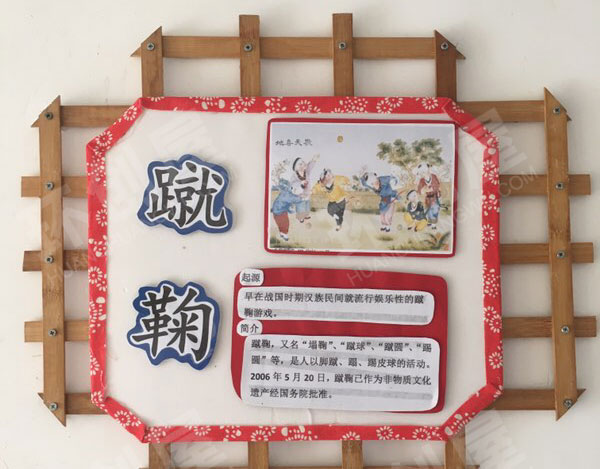 歡天喜地
蹴
鞠
起源
早在战国时期汉族民间就流行娱乐性的蹴
鞠游戏。
简介
蹴鞠，又名“蹋鞠”、“蹴球”、“蹴圆”、“踢
圆”等，是人以脚蹴、蹋、踢皮球的活动。
2006 年 5 月 20 日，蹴鞠已作为非物质文化
遗产经国务院批准。